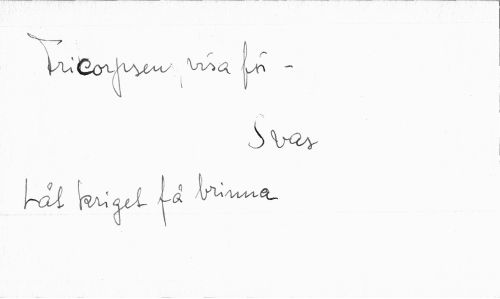 Fricorpsen, visa för -
Svas
Låt kriget få brinna